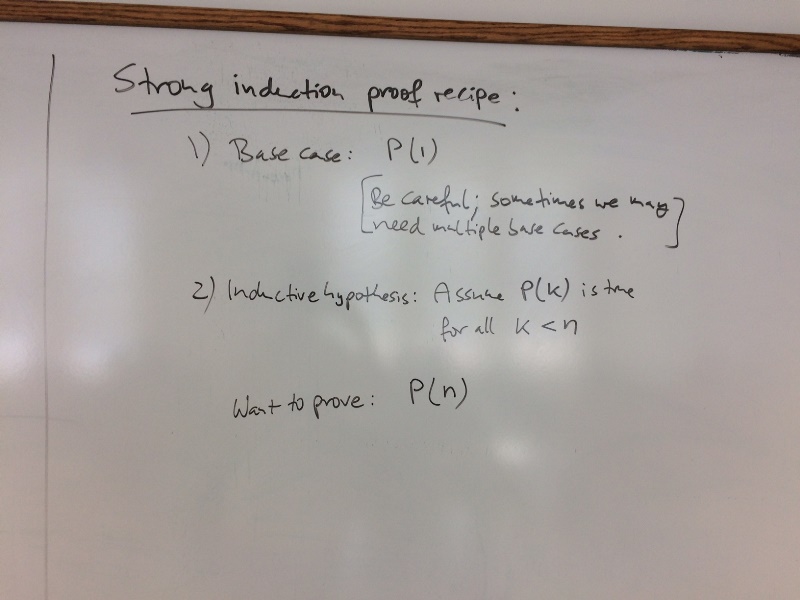 Strong induction proof recipe:
1) Base case: P(1)
[Be careful; sometimes we may
need multiple base cases.]
2) Inductive hypothesis: Assume P(k) is true
for all k < n
Want to prove: P(n)